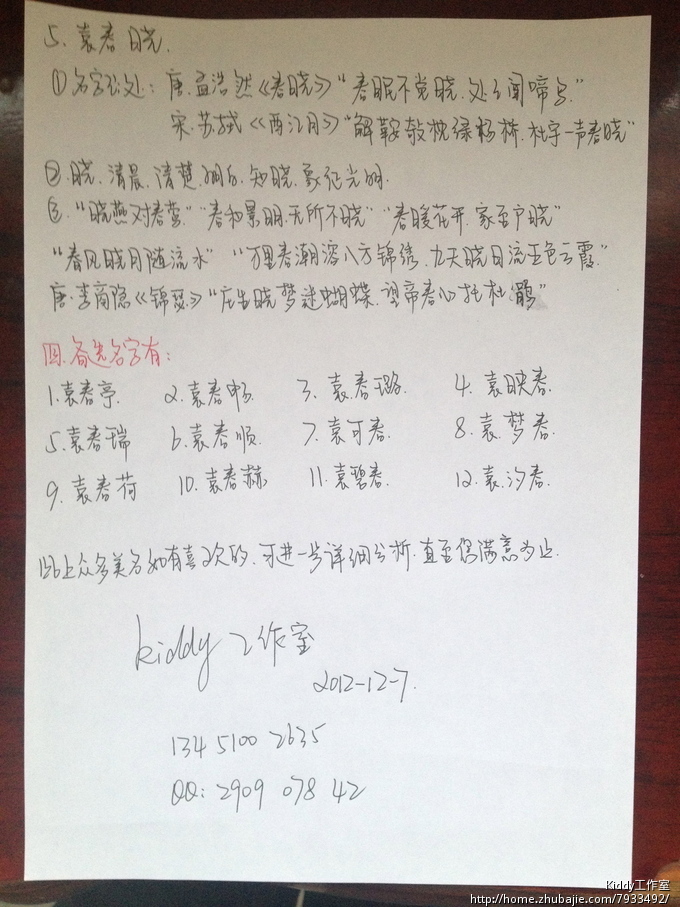 5. 袁春晓.
①名字出处: 唐.孟浩然《春晓》“春眠不觉晓.处处闻啼鸟”
宋.苏轼《西江月》“解鞍欹枕绿杨桥.杜宇一声春晓”
②.晓.清晨.清楚.明白.知晓.象征光明.
③.“晓燕对春莺”“春和景明.无所不晓”“春暖花开.家至户晓”
“春风晓月随流水”“万里春潮溶八方锦绣.九天晓日流五色云霞”
唐.李商隐《锦瑟》“庄生晓梦迷蝴蝶.望帝春心托杜鹃”
四.备选名字有:
1.袁春亭. 2.袁春畅. 3.袁春璐. 4.袁映春.
5.袁春瑞 6.袁春顺. 7.袁可春. 8.袁梦春.
9.袁春荷 10.袁春赫. 11.袁碧春. 12.袁汐春.
以上众多美名如有喜欢的.可进一步详细分析.直至您满意为止.
kiddy 工作室
2012-12-7.
134 5100 2635
QQ: 2909 078 42
Kiddy工作室
http://home.zhubajie.com/7933492/